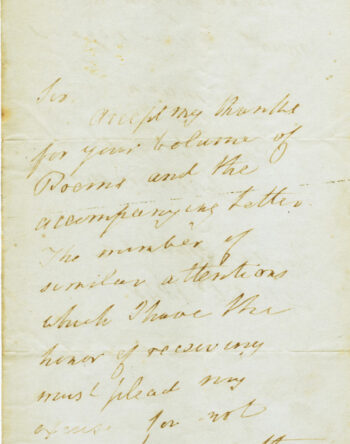 Sir
accept my thanks
for your volume of
Poems and the
accompanying letter.
The number of
similar attentions
which I have the
honor of receiving
must plead my
excuse for not